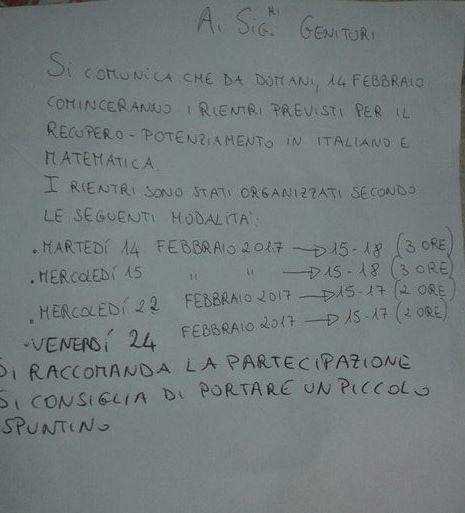 Ai SIG.RI GENITORI
SI COMUNICA CHE DA DOMANI, 14 FEBBRAIO
COMINCERANNO I RIENTRI PREVISTI PER IL
RECUPERO-POTENZIAMENTO IN ITALIANO E
MATEMATICA.
I RIENTRI SONO STATI ORGANIZZATI SECONDO
LE SEGUENTI MODALITÀ:
. MARTEDÍ 14 FEBBRAIO 2017 → 15-18 (3 ORE)
. MERCOLEDÍ 15 " " → 15-18 (3 ORE)
. MERCOLEDÍ 22 FEBBRAIO 2017 → 15-17 (2 ORE)
. VENERDÍ 24 FEBBRAIO 2017 → 15-17 (2 ORE)
SI RACCOMANDA LA PARTECIPAZIONE
SI CONSIGLIA DI PORTARE UN PICCOLO
SPUNTINO